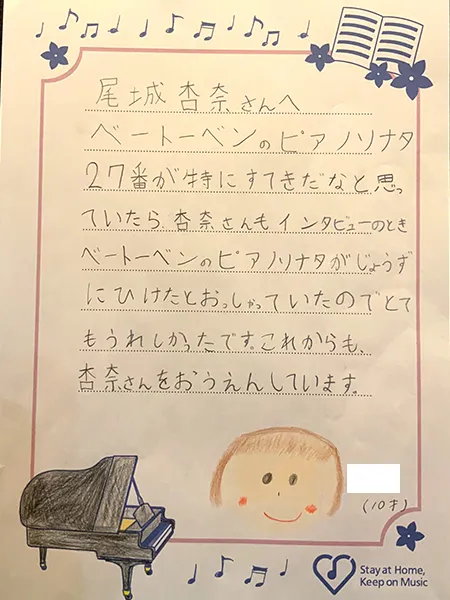 尾城杏奈さんへ
ベートーベンのピアノソナタ
27番が特にすてきだなと思っ
ていたら、杏奈さんもインタビューのとき
ベートーベンのピアノソナタがじょうず
にひけたとおっしゃっていたのでとて
もうれしかったです。これからも、
杏奈さんをおうえんしています。
(10才)
Stay at Home,
Keep on Music